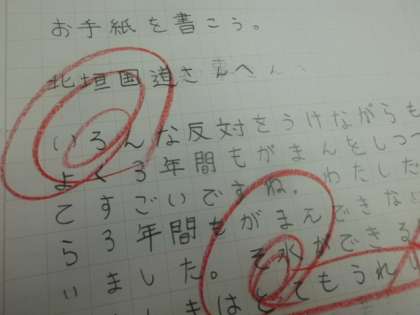 お手紙を書こう。
北垣国道さんへ
いろんな反対をうけながらも
よく3年間もがまんをしつ
てすごいですね。わたした
ら3年間もがまんできな
いました。そ水ができる
きはとてもうれ